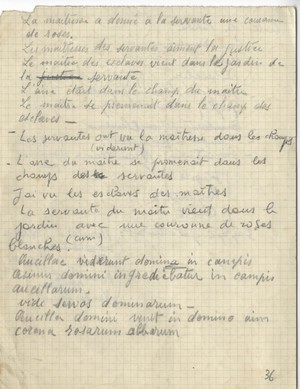 La maîtresse a donné à la servante une couronne
de roses.
Les maîtresses des servantes aiment la justice
Le maître des esclaves vient dans le jardin de
la servante
L'âne était dans le champ du maître
Le maître se promenait dans le champ des
esclaves -
- Les servantes ont vu la maîtresse dans les champs
(viderunt)
- L'âne du maître se promenait dans les
champs des servantes
J'ai vu les esclaves des maîtres
La servante du maître vient dans le
jardin avec une couronne de roses
blanches. (cum)
Ancillae viderunt domina in campis
Asinus domini ingrediebatur in campis
ancillarum.
vidi servos dominarum -
Ancilla domini venit in domino cum
corona rosarum albarum
36